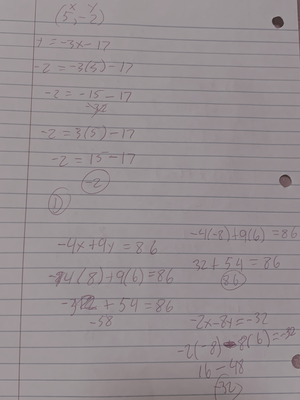 x y
(5,-2)
Y = -3x - 17
-2 = -3(5) - 17
-2 = -15 - 17
-32
-2 = 3(5) - 17
-2 = 15 - 17
-2
①
-4x + 9y = 86
-4(8) + 9(6) = 86
-32 + 54 = 86
-58
-4(-8) + 9(6) = 86
32 + 54 = 86
86
-2x - 8y = -32
-2(-8) - 8(6) = -32
16 - 48
-32